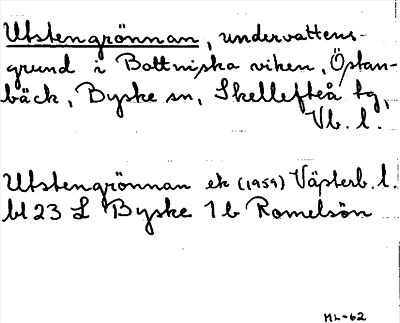 Utstengrönnan, undervattens-
grund i Bottniska viken, Östan-
bäck, Byske sn, Skellefteå tg,
Vb. l.
Utstengrönnan ek (1959) Västerb. l.
bl 23 L Byske 1 b Romelsön
ML-62